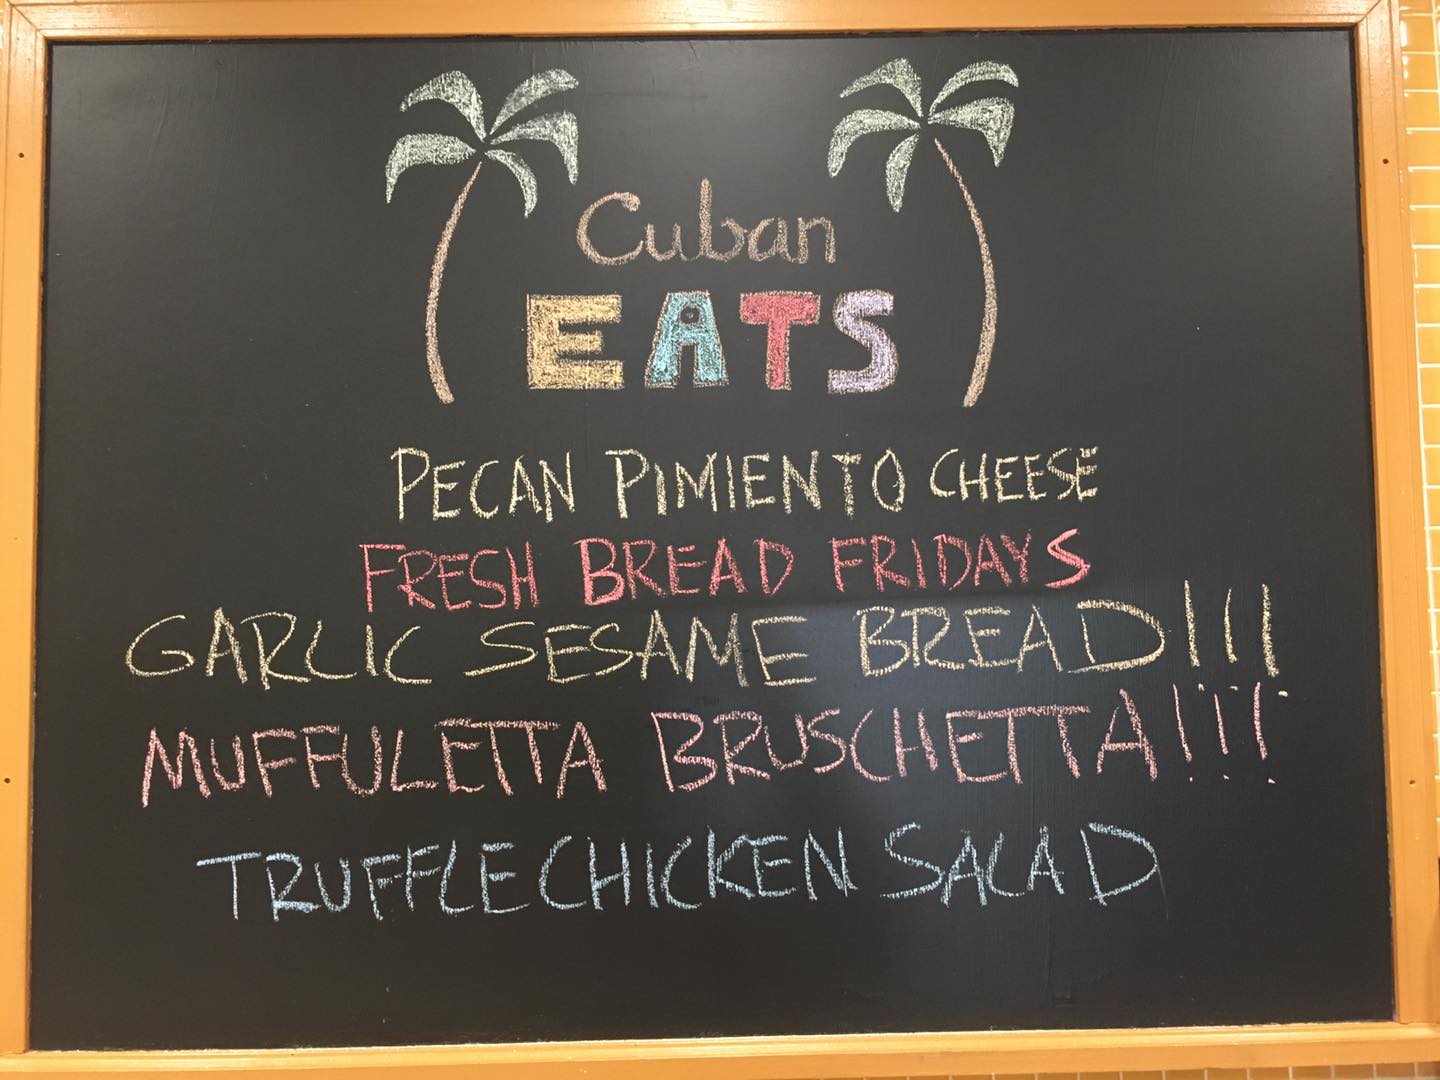 Cuban
EATS
PECAN PIMIENTO CHEESE
FRESH BREAD FRIDAYS
GARLIC SESAME BREAD!!!
MUFFULETTA BRUSCHETTA!!!
TRUFFLE CHICKEN SALAD